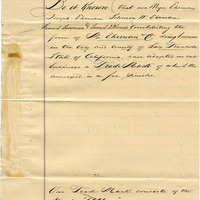 Be it Known, that we Myer Ehrman
Joseph Ehrman Solomon W. Ehrman
constituting the
firm of M. Ehrman & Co. doing business
in the City and County of San Francisco
State of California, have adopted in our
business a Trade Mark of which the
annexed is a fac simile
Our Trade Mark consists of the